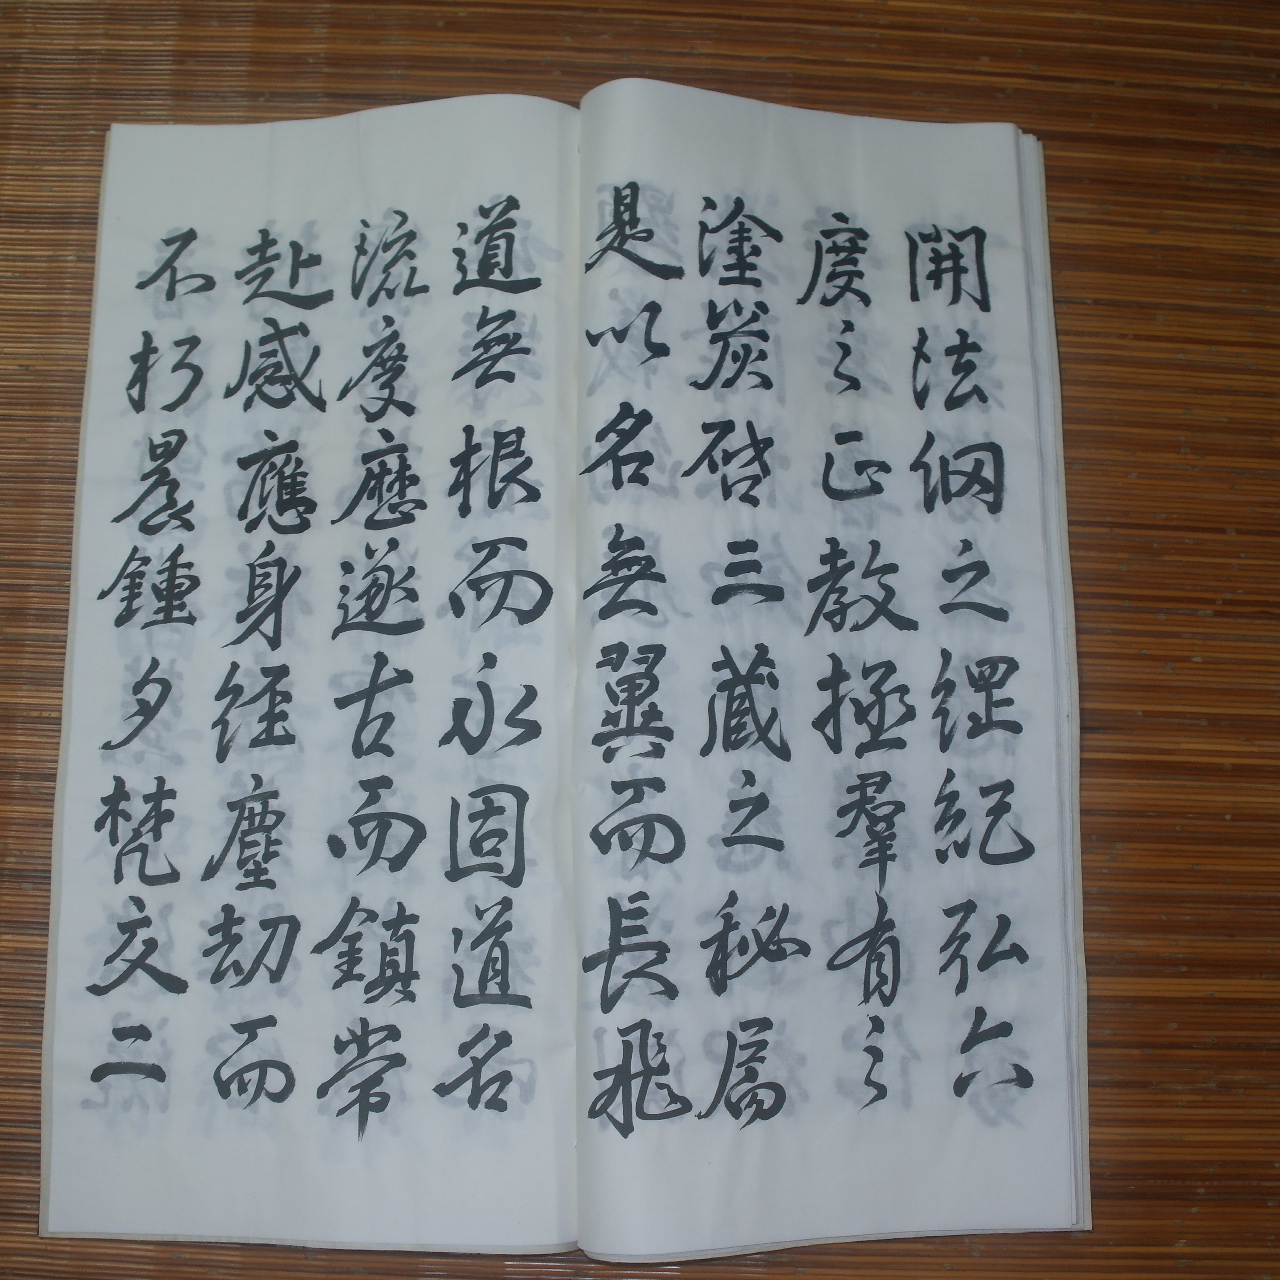 開法網之綱紀弘六
度之正教拯群有之
塗炭啓三藏之秘扃
是以名無翼而長飛
道無根而永固道名
流慶歷遂古而鎮常
赴感應身經塵劫而
不朽晨鍾夕梵交二